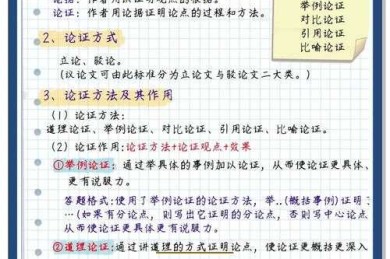 论据：作者用以证明观点的根据。
论证：作者用论据证明论点的过程和方法。
举例论证
对比论证
引用论证
比喻论证
2、论证方式
立论、驳论。
(以论文可由此标准分为立论文与驳论文二大类。)
3、论证方法及其作用
(1) 论证方法:
道理论证、举例论证、对比论证、引用论证、比喻论证。
(2) 论证作用:论证方法+论证观点+效果
①举例论证:通过举具体的事例加以论证，从而使论证更具体、
更有说服力。
答题格式:使用了举例论证的论证方法，举..(概括事例)证明了
…(如果有分论点，则写出它证明的分论点，否则写中心论点
从而使论证更具体更有说服力。
②道理论证:通过讲道理的方式证明论点，使论证更概括更深入